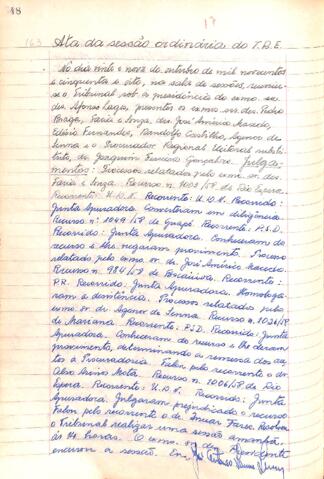 48
17
163
Ata da sessão ordinária do T.R.E.
No dia vinte e nove de outubro de mil novecentos
e cinquenta e oito, na sala de sessões, reuniu-
se o Tribunal sob a presidência do exmo. sr.
des. Afonso Lages, presentes os exmos. srs. des. Pedro
Braga, Faria e Souza, drs. José Américo Macedo,
Edésio Fernandes, Randolfo Castilho, Agenor de
Senna e o Procurador Regional Eleitoral substi-
tuto, dr. Joaquim Ferreira Gonçalves. Julga-
mentos: Processos relatados pelo exmo. sr. des.
Faria e Souza. Recurso n. 1003/58 de Rio Espera.
Recorrente: U.D.N. Recorrido:
Junta Apuradora. Converteram em diligência.
Recurso n. 1049/58 de Guapé. Recorrente: P.S.D.
Recorrido: Junta Apuradora. Conheceram do
recurso e lhe negaram provimento. Processo
relatado pelo exmo. sr. dr. José Américo Macedo.
Recurso n. 984/58 de Bocaiuva. Recorrente:
P.R. Recorrido: Junta Apuradora. Homologa-
ram a desistência. Processos relatados pelo
exmo. sr. dr. Agenor de Senna. Recurso n. 1026/58
de Mariana. Recorrente: P.S.D. Recorrido: Junta
Apuradora. Conheceram do recurso e lhe deram
provimento, determinando a remessa dos au-
tos à Procuradoria. Falou pelo recorrente o dr.
Mota. Recurso n. 1006/58 de Rio
Espera. Recorrente: U.D.N. Recorrido: Junta
Apuradora. Julgaram prejudicado o recurso.
Falou pelo recorrente o dr. Faria. Resolveu
o Tribunal realizar uma sessão amanhã,
às 14 horas. O exmo. sr. des. Presidente
encerrou a sessão. Eu,